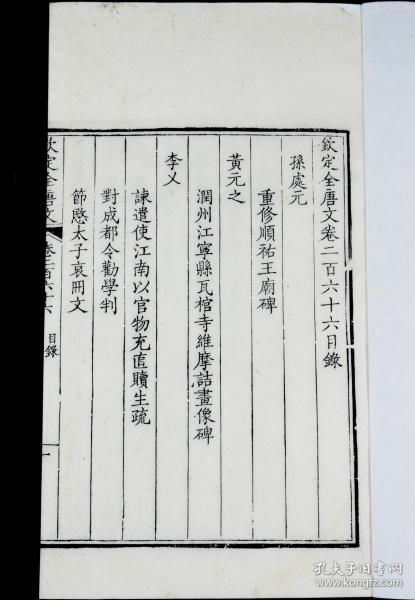 欽定全唐文卷二百六十六目錄
孫處元
重修順祐王廟碑
黃元之
潤州江寧縣瓦棺寺維摩詰畫像碑
李乂
諫遣使江南以官物充直贖生疏
對成都令勸學判
節愍太子哀冊文
欽定全唐文 卷二百六十六 目錄 一
孔夫子旧书网
www.kongfz.com